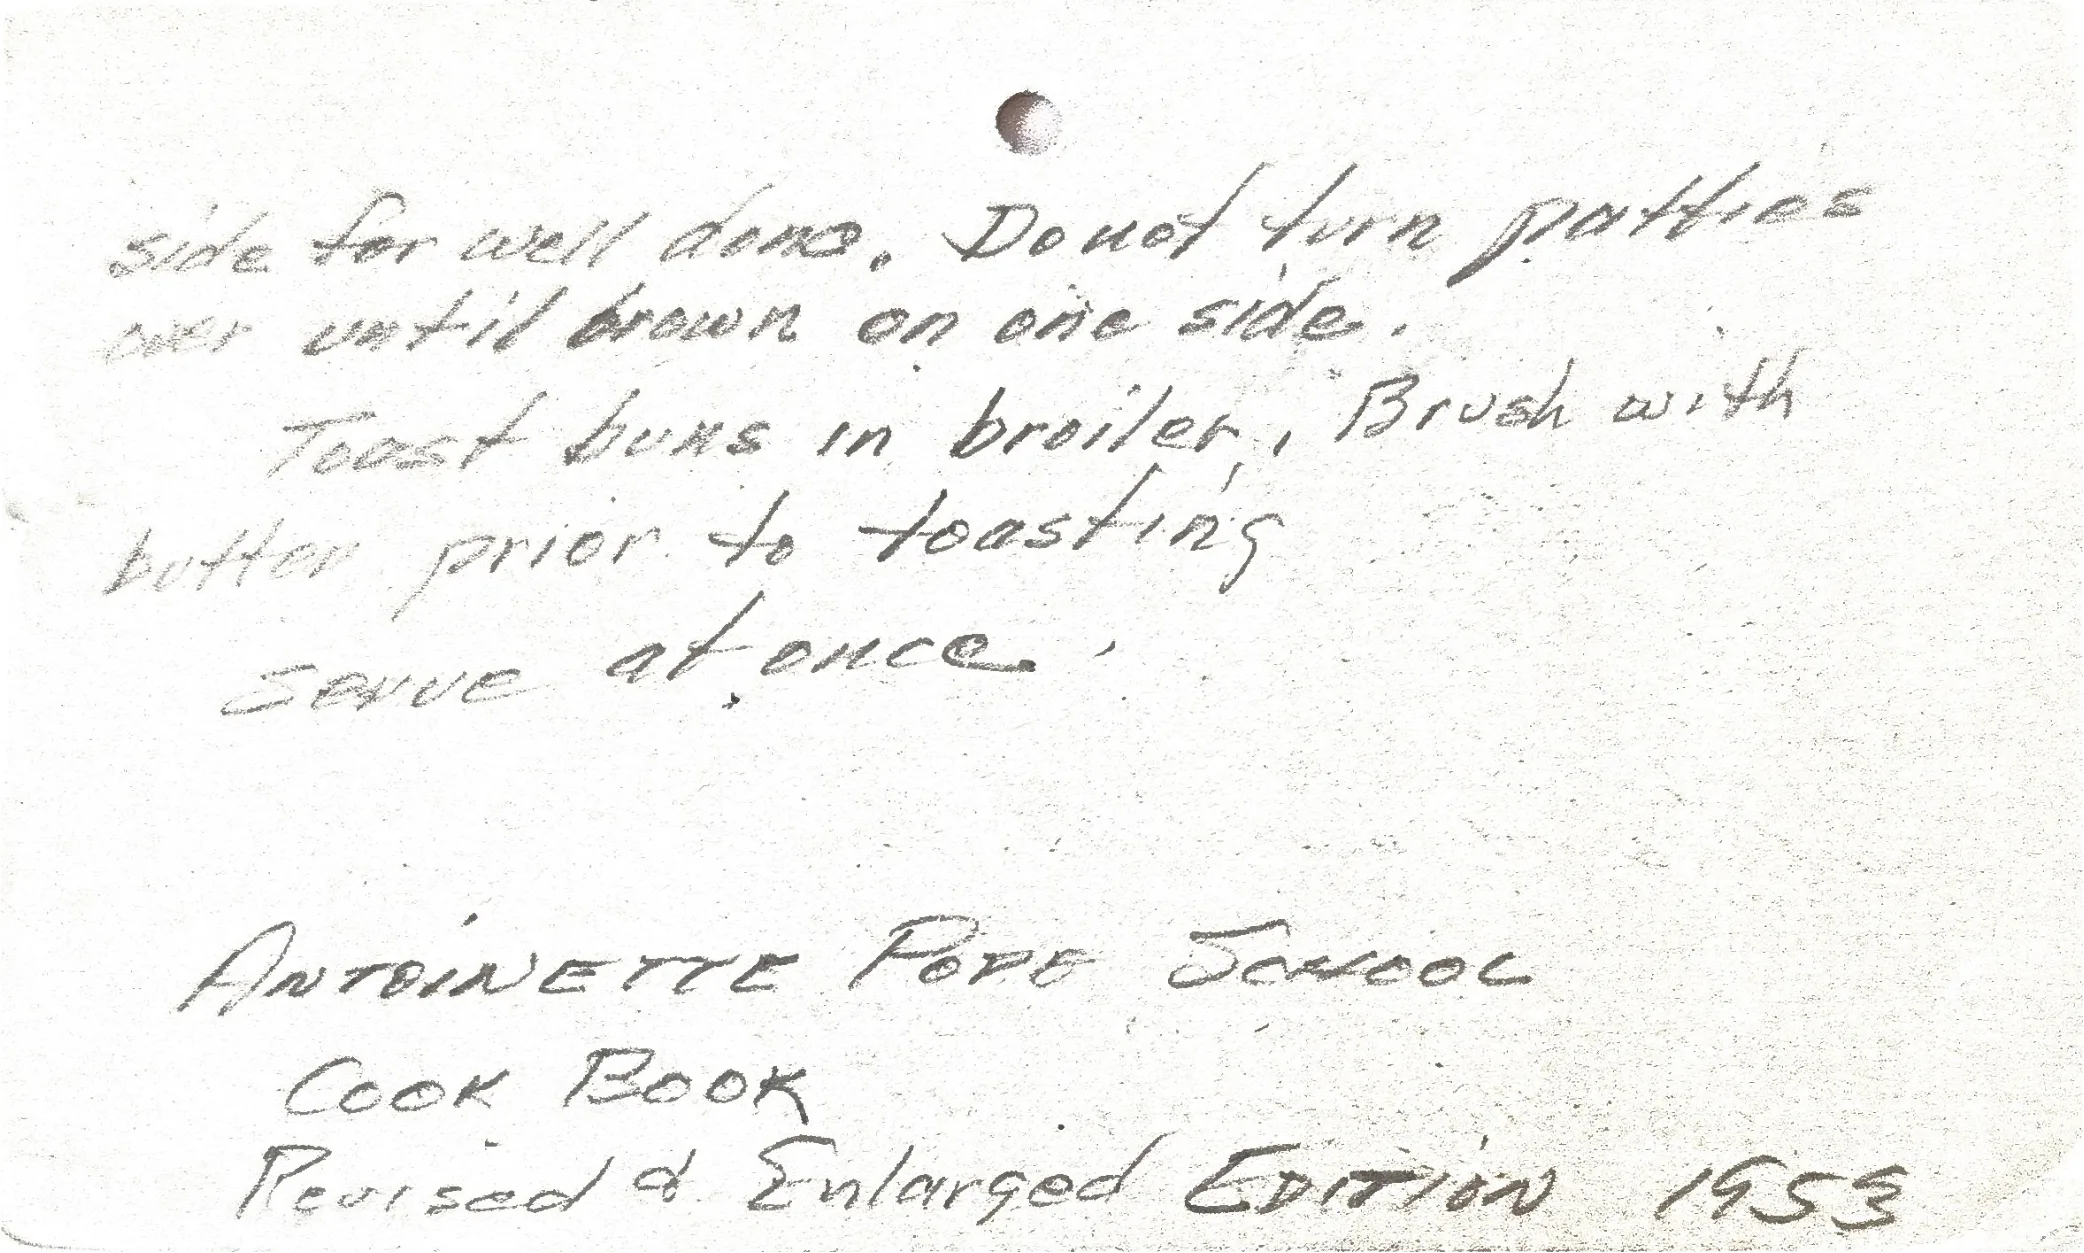 side for well done. Do not turn patties
over until brown on one side.
Toast buns in broiler. Brush with
butter prior to toasting
serve at once.
ANTOINETTE POPE SCHOOL
COOK BOOK
Revised & Enlarged EDITION 1953